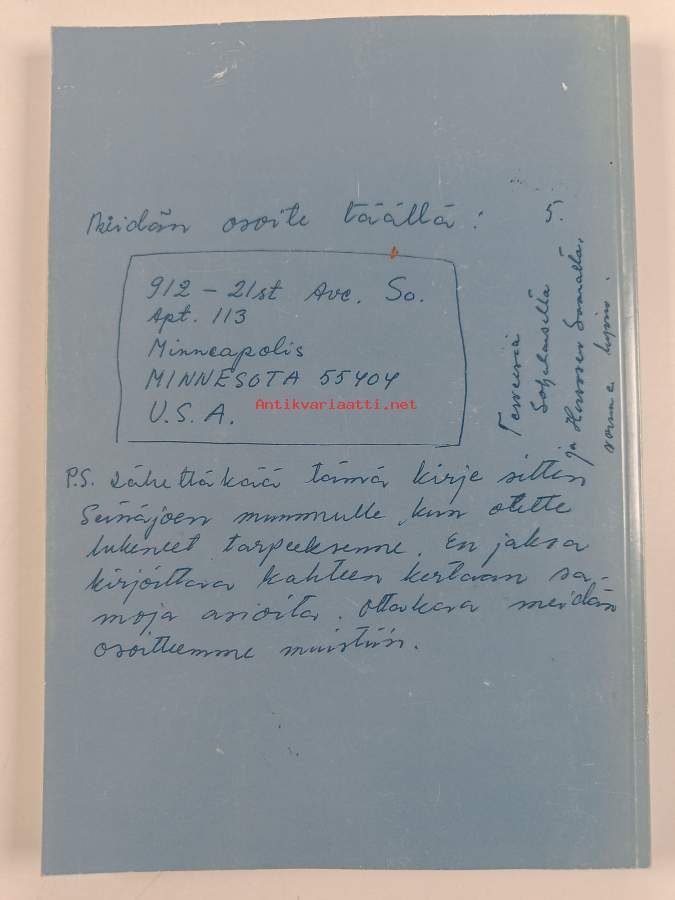 Meidän osoite täällä:
5.
912 - 21st Ave. So.
Apt. 113
Minneapolis
MINNESOTA 55404
U.S.A.
Antikvariaatti.net
Terveisiä
ja
P.S. Lähettäkää tämä kirje sitten
Seinäjoen mummulle, kun olette
lukeneet tarpeeksenne. En jaksa
kirjoittaa kahteen kertaan sa-
moja asioita. Ottakaa meidän
osoitteemme muistiin.